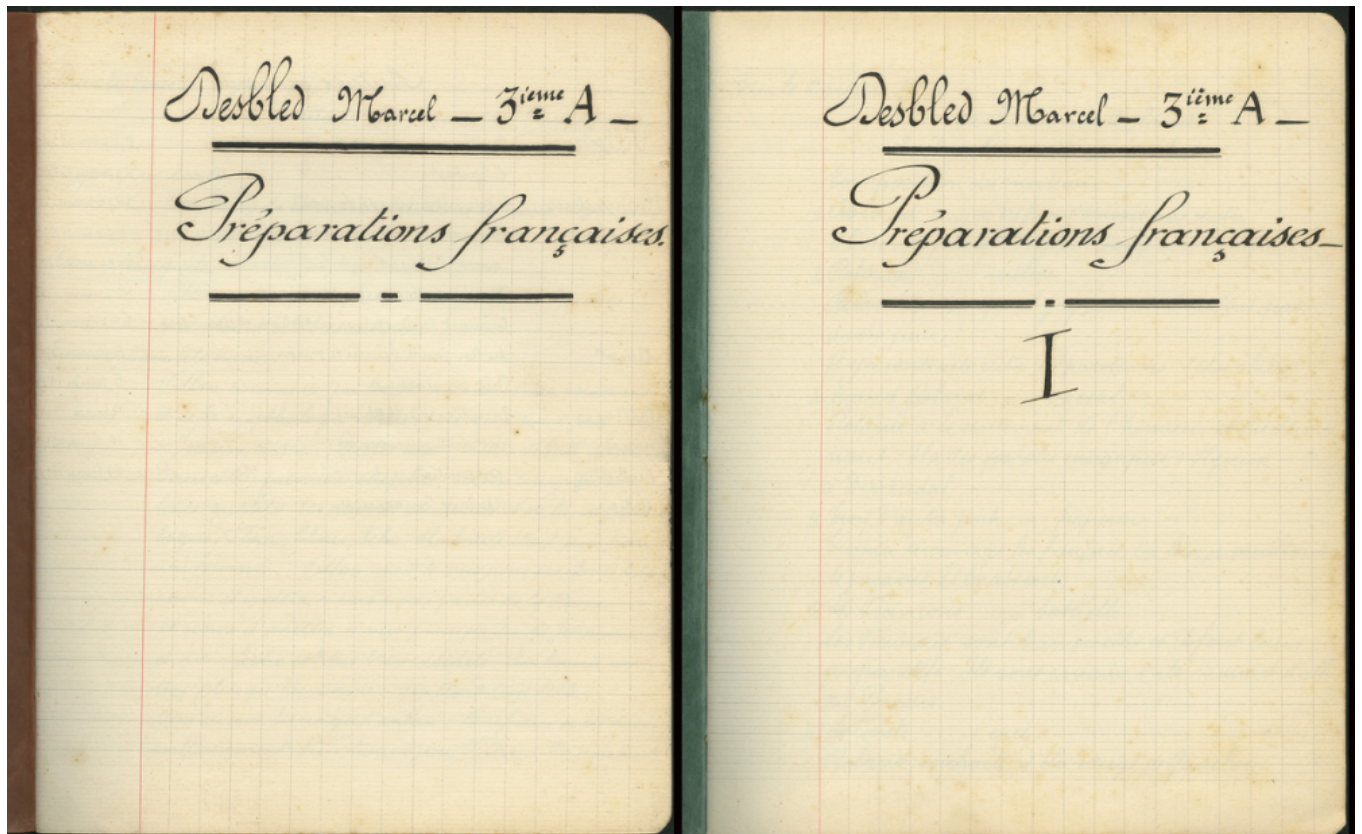 Desbled Marcel — 3ieme A —
Préparations françaises.
Desbled Marcel — 3ième A —
Préparations françaises —
I